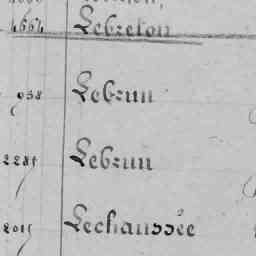 4664 Lebreton
938 Lebrun
2285 Lebrun
2015 Lechaussée